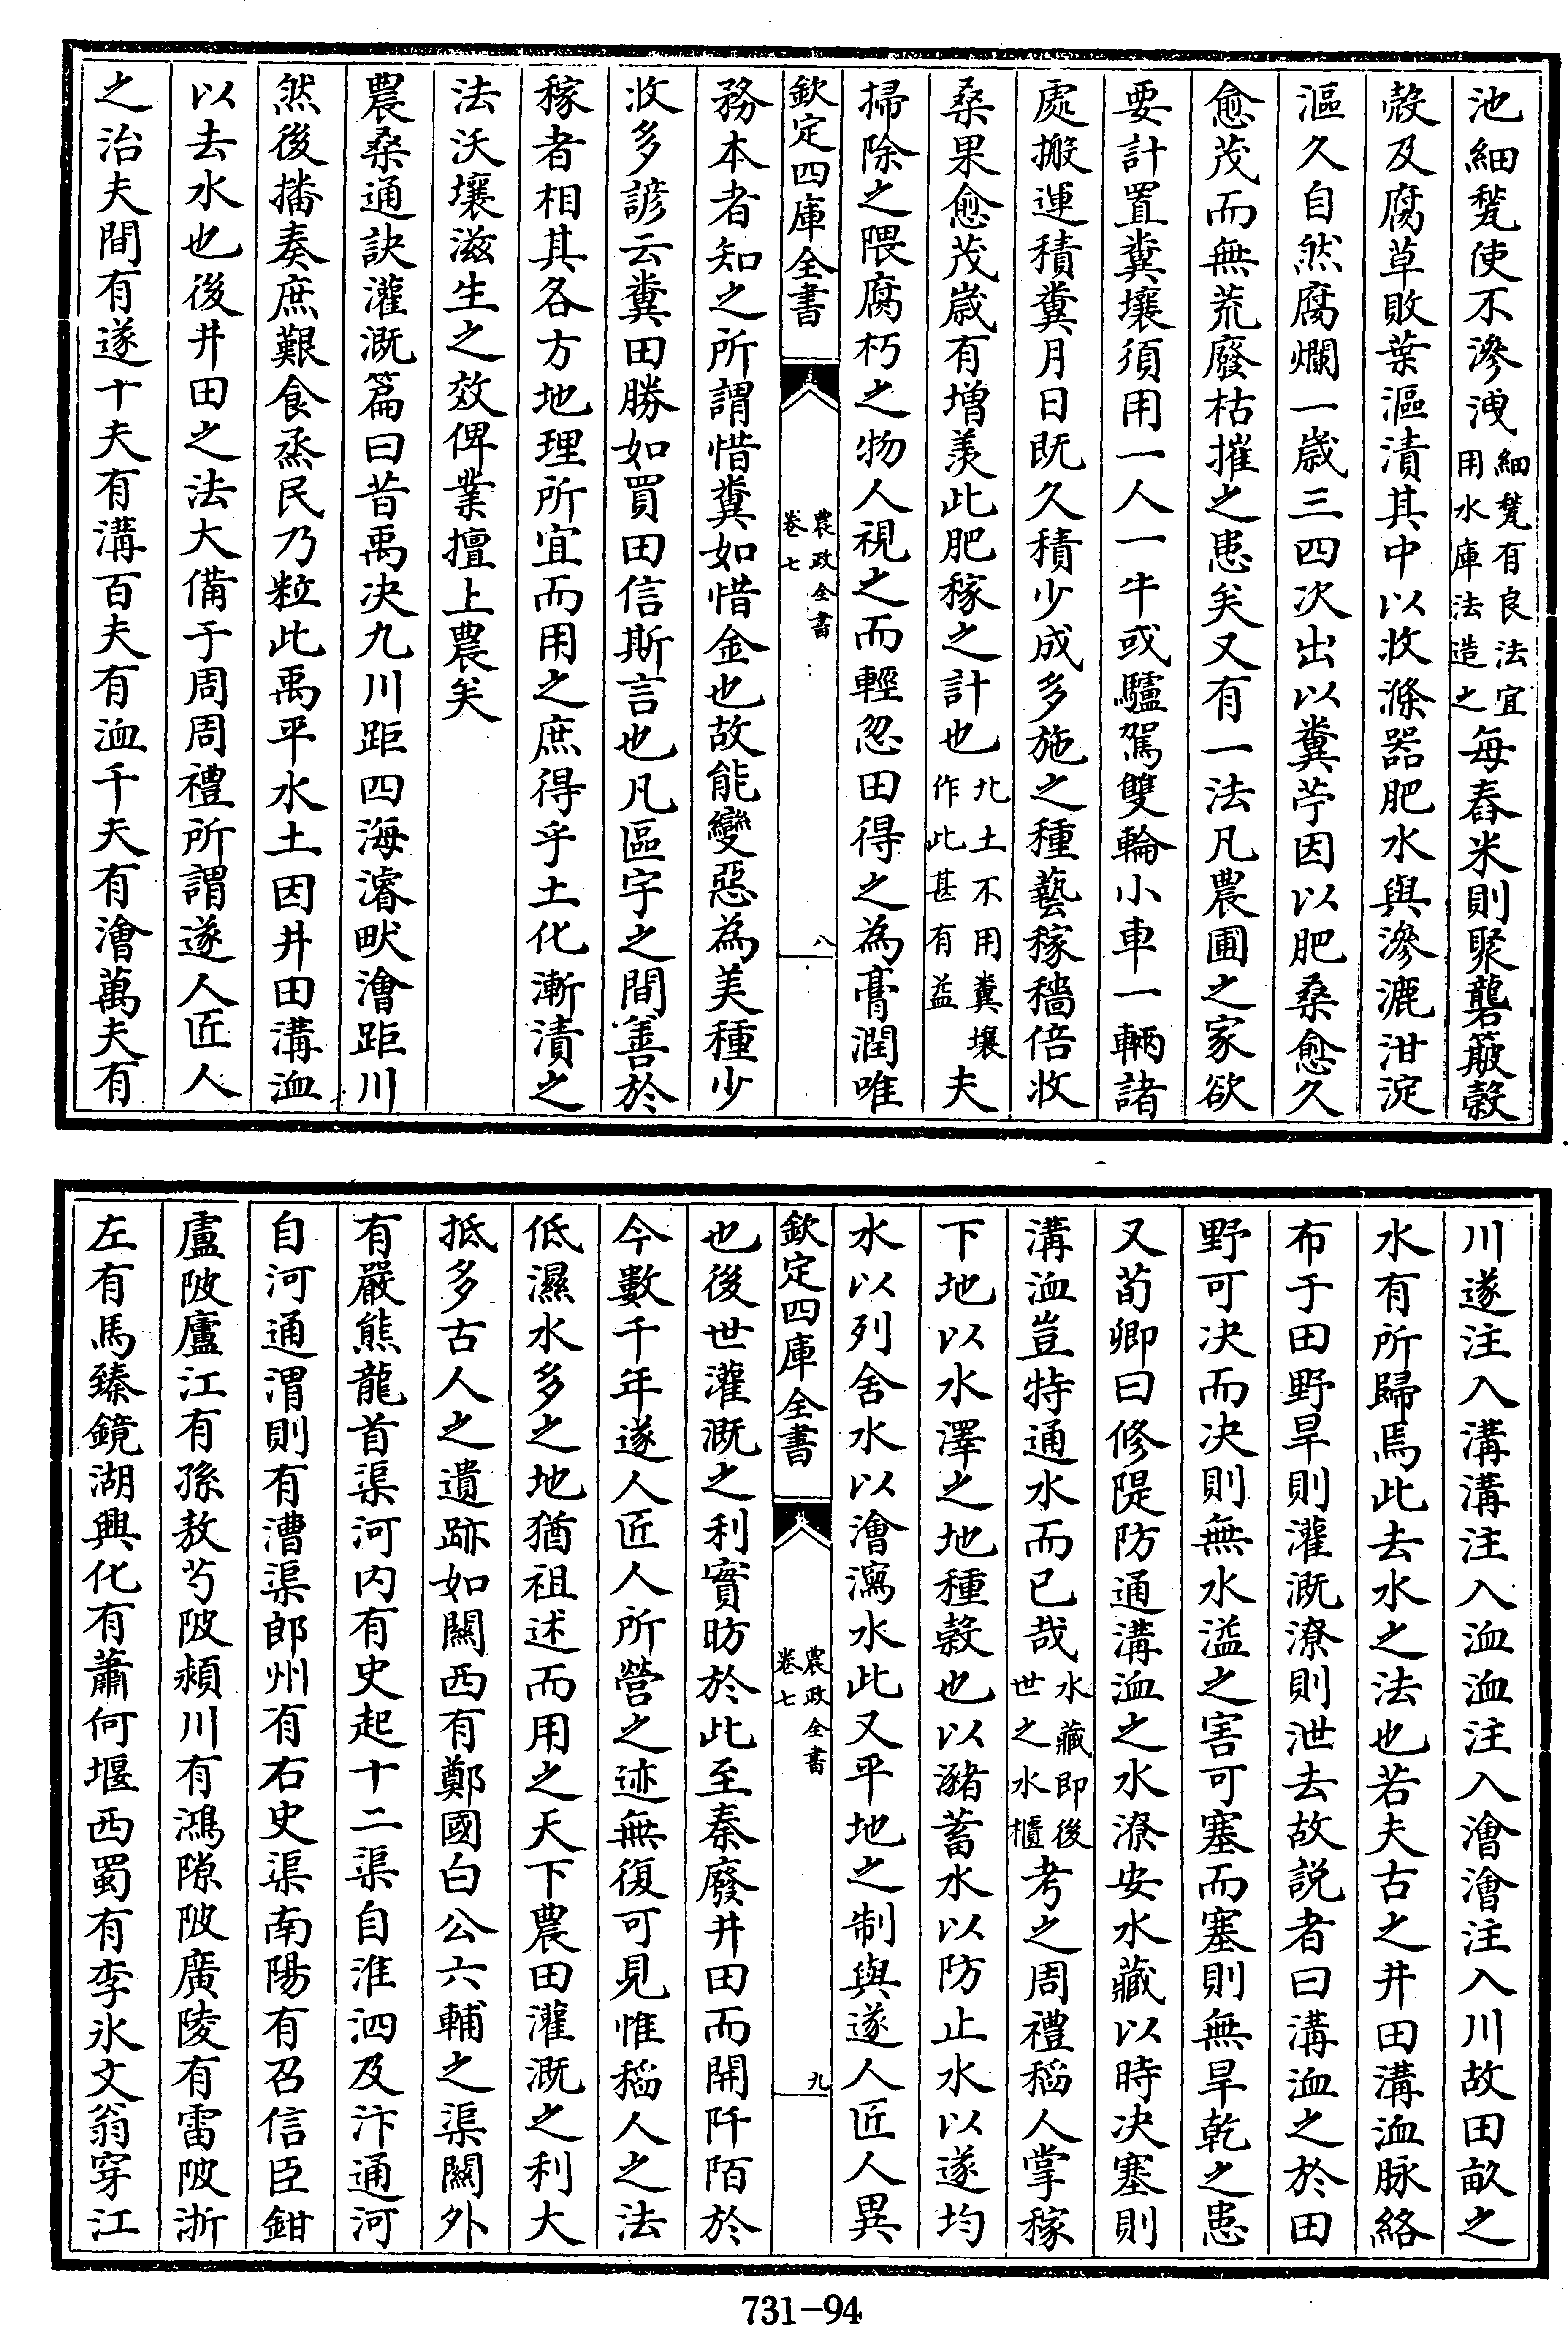 池細甃使不滲洩細甃有良法宜用水庫法造之每舂米則聚礱簸穀
殻及腐草敗葉漚漬其中以收滌器肥水與滲漉泔淀
漚久自然腐爛一歲三四次出以糞苧因以肥桑愈久
愈茂而無荒廢枯摧之患矣又有一法凡農圃之家欲
要計置糞壤須用一人一牛或驢駕雙輪小車一輛諸
處搬運積糞月日既久積少成多施之種藝稼穡倍收
桑果愈茂歲有増羨此肥稼之計也北土不用糞壤作此甚有益夫
掃除之隈腐朽之物人視之而輕忽田得之為膏潤唯
欽定四庫全書
農政全書
卷七
八
務本者知之所謂惜糞如惜金也故能變惡為美種少
收多諺云糞田勝如買田信斯言也凡區宇之間善於
稼者相其各方地理所宜而用之庶得乎土化漸漬之
法沃壤滋生之效俾業擅上農矣
農桑通訣灌溉篇曰昔禹决九川距四海濬畎澮距川
然後播奏庶艱食烝民乃粒此禹平水土因井田溝洫
以去水也後井田之法大備于周周禮所謂遂人匠人
之治夫間有遂十夫有溝百夫有洫千夫有澮萬夫有
川遂注入溝溝注入洫洫注入澮澮注入川故田畝之
水有所歸焉此去水之法也若夫古之井田溝洫脉絡
布于田野旱則灌溉潦則泄去故説者曰溝洫之於田
野可决而决則無水溢之害可塞而塞則無旱乾之患
又荀卿曰修隄防通溝洫之水潦安水藏以時决塞則
溝洫豈特通水而已哉水藏即後世之水櫃考之周禮稻人掌稼
下地以水澤之地種穀也以瀦蓄水以防止水以遂均
水以列舍水以澮瀉水此又平地之制與遂人匠人異
欽定四庫全書
農政全書
卷七
九
也後世灌溉之利實昉於此至秦廢井田而開阡陌於
今數千年遂人匠人所營之迹無復可見惟稻人之法
低濕水多之地猶祖述而用之天下農田灌溉之利大
抵多古人之遺跡如關西有鄭國白公六輔之渠關外
有嚴熊龍首渠河内有史起十二渠自淮泗及汴通河
自河通渭則有漕渠郎州有右史渠南陽有召信臣鉗
盧陂廬江有孫敖芍陂潁川有鴻隙陂廣陵有雷陂浙
左有馬臻鏡湖興化有蕭何堰西蜀有李氷文翁穿江
731-94